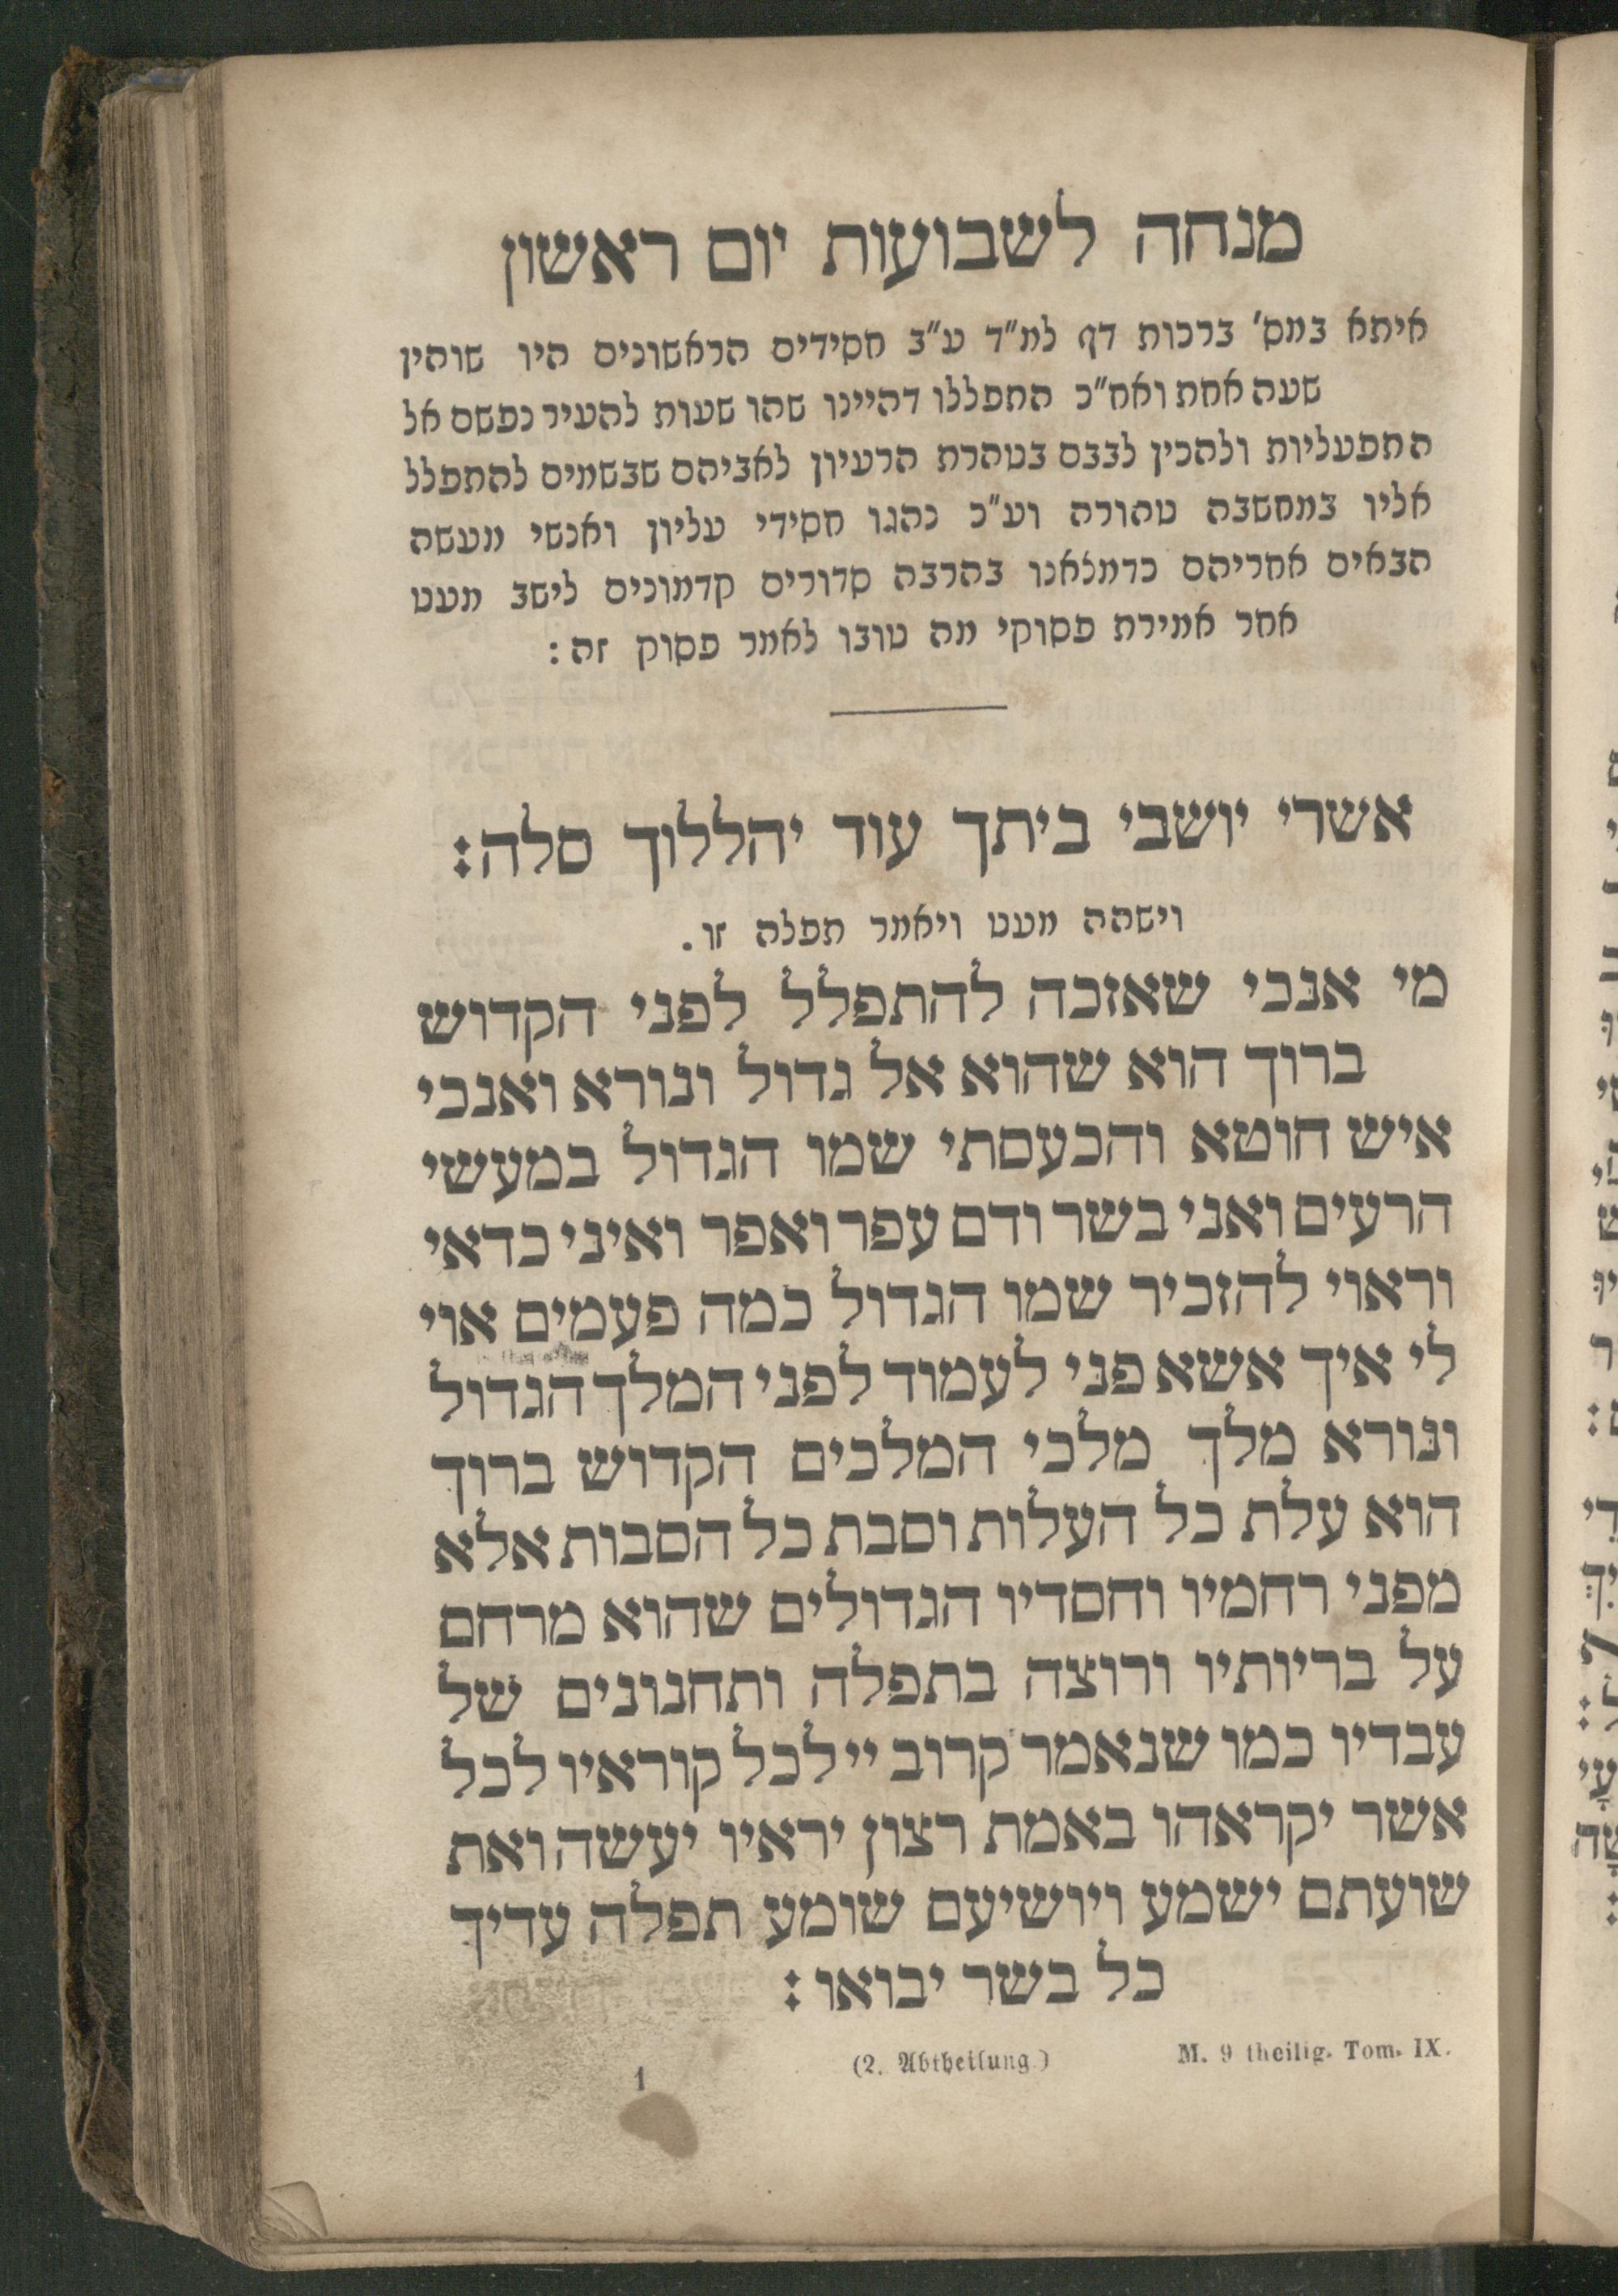 מנחה לשבועות יום ראשון
איתא במס' ברכות דף למ"ד ע"ב חסידים הראשונים היו שוהין
שעה אחת ואח"כ התפללו דהיינו שהו שעות להעיר נפשם אל
התפעליות ולהכין לבבם בטהרת הרעיון לאביהם שבשמים להתפלל
אליו במחשבה טהורה וע"כ נהגו חסידי עליון ואנשי מעשה
הבאים אחריהם כדמצאנו בהרבה סדורים קדמונים לישב מעט
אחר אמירת פסוקי מה טובו לאמר פסוק זה:
אשרי יושבי ביתך עוד יהללוך סלה:
וישהה מעט ויאמר תפלה זו.
מי אנכי שאזכה להתפלל לפני הקדוש
ברוך הוא שהוא אל גדול ונורא ואנכי
איש חוטא והכעסתי שמו הגדול במעשי
הרעים ואני בשר ודם עפר ואפר ואיני כדאי
וראוי להזכיר שמו הגדול כמה פעמים אוי
לי איך אשא פני לעמוד לפני המלך הגדול
ונורא מלך מלכי המלכים הקדוש ברוך
הוא עלת כל העלות וסבת כל הסבות אלא
מפני רחמיו וחסדיו הגדולים שהוא מרחם
על בריותיו ורוצה בתפלה ותחנונים של
עבדיו כמו שנאמר קרוב יי לכל קוראיו לכל
אשר יקראהו באמת רצון יראיו יעשה ואת
שועתם ישמע ויושיעם שומע תפלה עדיך
כל בשר יבואו:
M. 9 theilig. Tom. IX. (2. Abtheilung.) 1